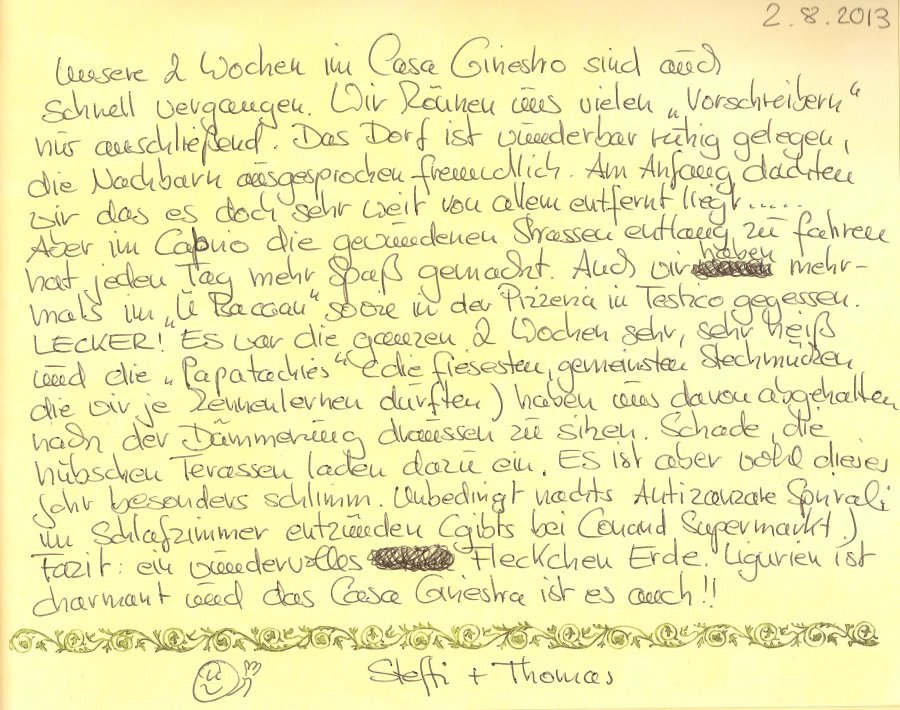 2.8.2013
Unsere 2 Wochen im Casa Ginestro sind auch
schnell vergangen. Wir können uns vielen „Vorschreibern“
nur anschließend. Das Dorf ist wunderbar ruhig gelegen,
die Nachbarn ausgesprochen freundlich. Am Anfang dachten
wir das es doch sehr weit von allem entfernt liegt......
Aber im Cabrio die gewundenen Strassen entlang zu fahren
hat jeden Tag mehr Spaß gemacht. Auch wir haben mehr-
mals im „U Baccan“ sowie in der Pizzeria in Testico gegessen.
LECKER! Es war die ganzen 2 Wochen sehr, sehr heiß
und die „Papatachies“ (die fiesesten, gemeinsten Stechmücken
die wir je kennenlernen durften) haben uns davon abgehalten
nach der Dämmerung draussen zu sitzen. Schade, die
hübschen Terassen laden dazu ein. Es ist aber wohl dieses
Jahr besonders schlimm. Unbedingt nachts Antizanzare Spirali
im Schlafzimmer entzünden (gibts bei Conand Supermarkt)
Fazit: ein wundervolles Fleckchen Erde. Ligurien ist
charmant und das Casa Ginestra ist es auch!!
Steffi + Thomas